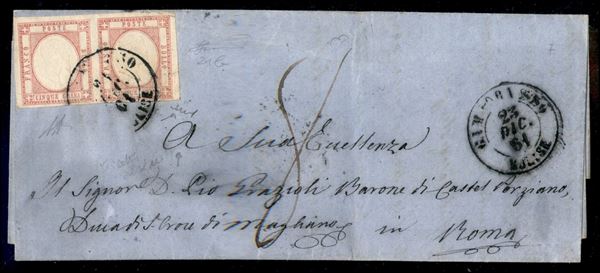 FRANCO POSTE BOLLO
FRANCO POSTE BOLLO
CINQUE GRANA
23 DIC. 61
MOLISE
A Sua Eccellenza
Il Signor D. Pio Grazioli Barone di Castel Porziano,
Duca di S. Croce di Magliano
in Roma
8